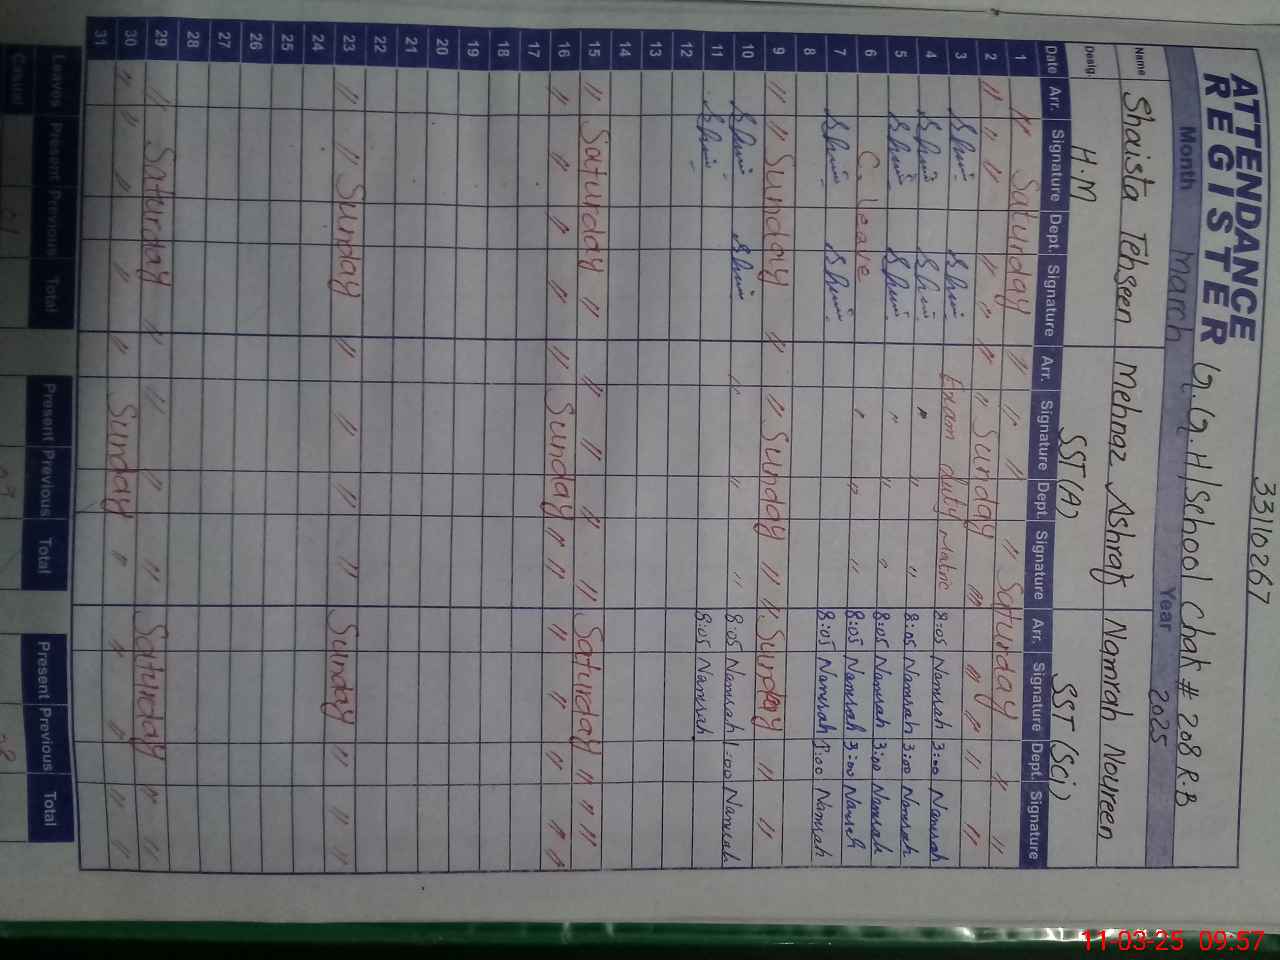 33110267
ATTENDANCE
REGISTER G.G.H/School Chak # 208 R.B
Month March Year 2025
Name Shaista Tehseen Mehnaz Ashraf Namrah Noureen
Desig. H.M SST(A) SST (Sci)
Date Arr. Signature Dept. Signature Arr. Signature Dept. Signature Arr. Signature Dept. Signature
1 " Saturday " " " " Saturday " "
2 " " " " " " " Sunday " " " " "
3 Exam duty Matric 8:05 Namrah 3:00 Namrah
4 " " " 8:05 Namrah 3:00 Namrah
5 " " " 8:05 Namrah 3:00 Namrah
6 C. leave " " " 8:05 Namrah 3:00 Namrah
7 8:05 Namrah 1:00 Namrah
8
9 " " Sunday " " Sunday " " Sunday " "
10 " " " 8:05 Namrah 1:00 Namrah
11 8:05 Namrah
12
13
14
15 " Saturday " " " " " Saturday " " "
16 " " " " " Sunday " " " " " " "
17
18
19
20
21
22
23 " " Sunday " " " " Sunday " " "
24
25
26
27
28
29 " Saturday " " " " Saturday " "
30 " " " " " Sunday " " " " "
31
Leaves Present Previous Total Present Previous Total Present Previous Total
Causal
11-03-25 09:57